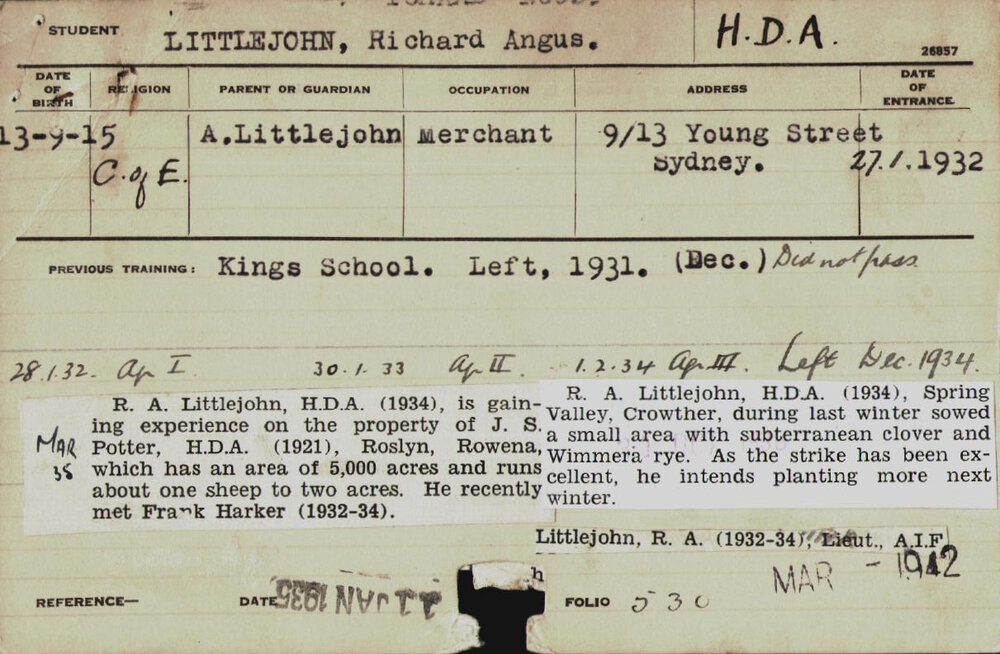 STUDENT LITTLEJOHN, Richard Angus. H.D.A.
26857
DATE OF BIRTH RELIGION PARENT OR GUARDIAN OCCUPATION ADDRESS DATE OF ENTRANCE
13-9-15 C. of E. A.Littlejohn Merchant 9/13 Young Street
Sydney. 27.1.1932
PREVIOUS TRAINING: Kings School. Left, 1931. (Dec.) Did not pass.
28.1.32. Ag I. 30.1.33 Ag II. 1.2.34 Ag III. Left Dec. 1934.
MAR 35
R. A. Littlejohn, H.D.A. (1934), is gain-
ing experience on the property of J. S.
Potter, H.D.A. (1921), Roslyn, Rowena,
which has an area of 5,000 acres and runs
about one sheep to two acres. He recently
met Frank Harker (1932-34).
R. A. Littlejohn, H.D.A. (1934), Spring
Valley, Crowther, during last winter sowed
a small area with subterranean clover and
Wimmera rye. As the strike has been ex-
cellent, he intends planting more next
winter.
Littlejohn, R. A. (1932-34), Lieut., A.I.F.
MAR - 1942
h
REFERENCE— DATE 11 JAN 1935 FOLIO 530